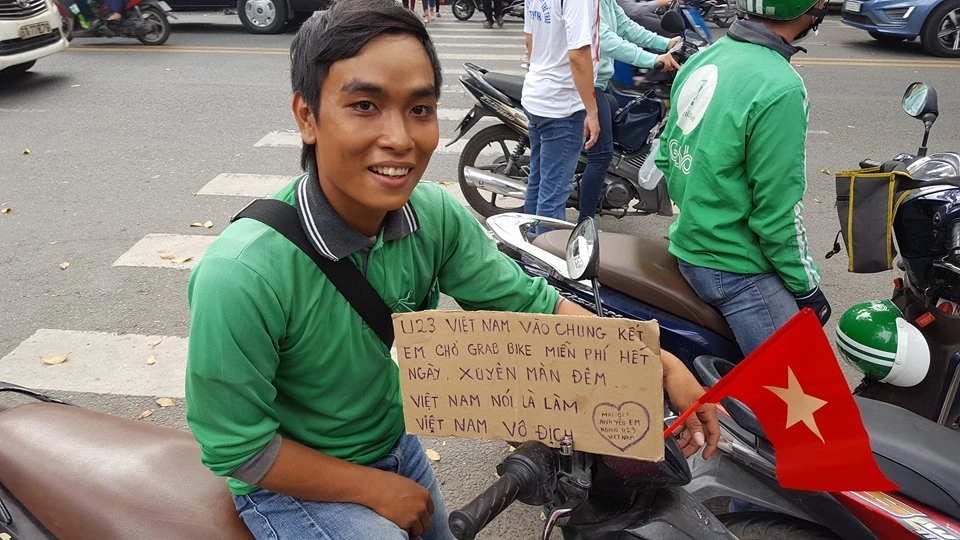 U23 VIỆT NAM VÀO CHUNG KẾT
EM CHỞ GRAB BIKE MIỄN PHÍ HẾT
NGÀY. XUYÊN MÀN ĐÊM
VIỆT NAM NÓI LÀ LÀM
VIỆT NAM VÔ ĐỊCH
ANH YÊU EM
NGANG U23
VIỆT NAM